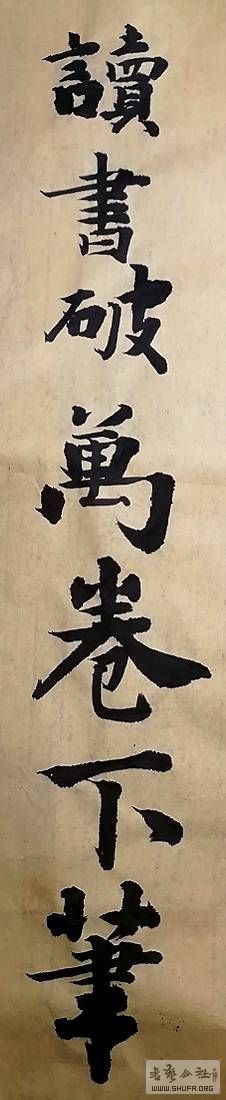 讀書破萬卷下筆
書藝公社
WWW.SHUFA.ORG